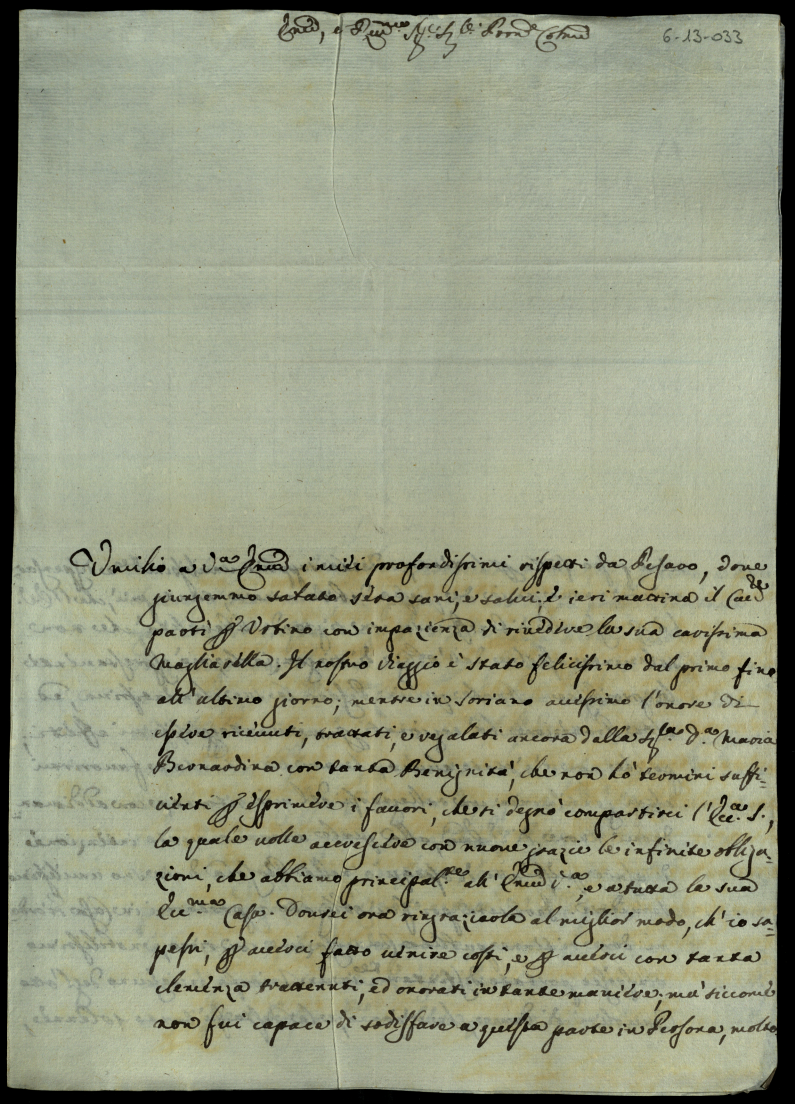 Em̃o, e Rm̃o Sig.e Sig.e Pron.e Colmo
6-13-033
Umilio a V.a Em̃a i miei profondissimi rispetti da Pesaro, dove
giungemmo sabato sera sani, e salvi; e ieri mattina il
partì ꝑ Urbino con impazienza di rivedere la sua carissima
Magliarella. Il nostro viaggio è stato felicissimo dal primo fino
all'ultimo giorno; mentre in Soriano avessimo l'onore di
essere ricevuti, trattati, e regalati ancora dalla Sig.ra D.a Maria
Bernardina con tanta Benignità, che non hò termini suffi-
cienti ꝑ esprimere i favori, che si degnò compartirci l'Ecc.a S.,
la quale volle accrescere con nuove grazie le infinite obliga-
zioni, che abbiamo principal.te all'Em̃a V.a, e a tutta la sua
Ecc.ma Casa. Dovrei ora ringraziarla al miglior modo, ch'io sa-
pessi, ꝑ averci fatto venire costì, e ꝑ averci con tanta
clemenza trattenuti, ed onorati in tante maniere; mà siccome
non fui capace di sodisfare a questa parte in Persona, molto